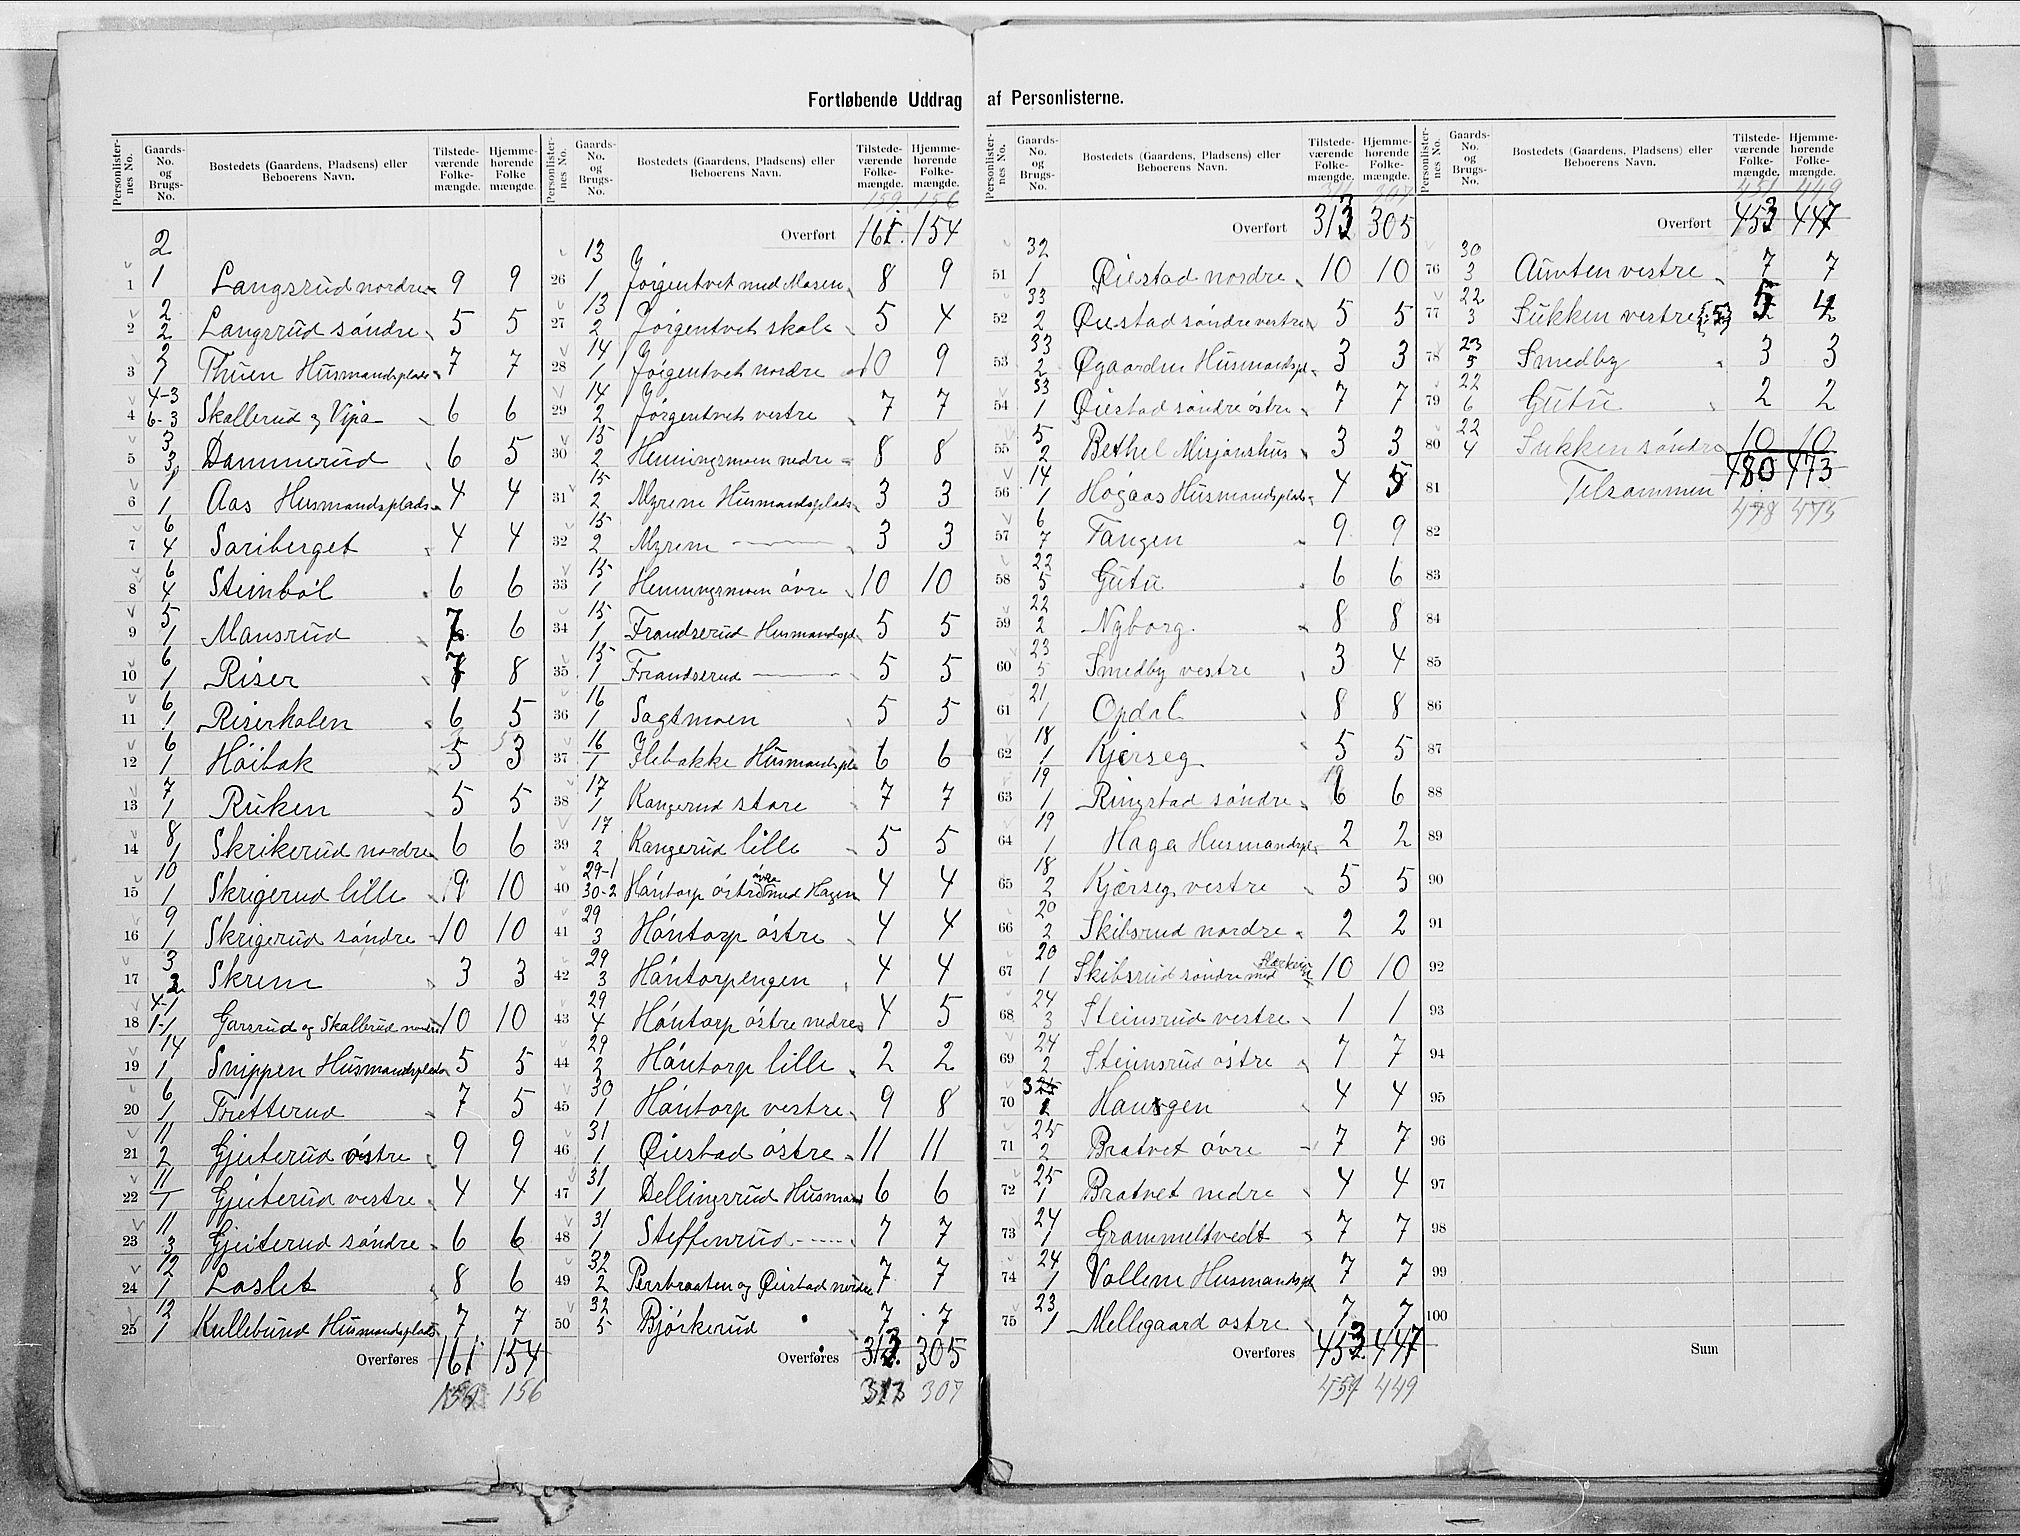 Fortløbende Uddrag af Personlisterne.
Personlister-nes No. Gaards-No. og Brugs-No. Bostedets (Gaardens, Pladsens) eller Beboerens Navn. Tilstede-værende Folke-mængde. Hjemme-hørende Folke mængde.
1 2 1 Langsrud nordre 9 9
2 2 2 Langsrud søndre 5 5
3 2 1 Thuen Husmandsplads 7 7
4 4-3 6-3 Skallerud og Vipa 6 6
5 3 3 Dammerud 6 5
6 1 1 Aas Husmandsplads 4 4
7 6 4 Sariberget 4 4
8 6 4 Steinból 6 6
9 5 1 Mansrud 7 6
10 6 1 Riser 7 8
11 6 1 Riserkolen 6 5
12 6 1 Hóibak 5 3
13 7 1 Ruken 5 5
14 8 1 Skrikerud nordre 6 6
15 10 1 Skrigerud lille 9 10
16 9 1 Skrigerud søndre 10 10
17 3 2 Skrem 3 3
18 4-1 1-1 Garsrud og Skallerud nordre 10 10
19 14 1 Snippen Husmandsplads 5 5
20 6 1 Tretterud 7 5
21 11 2 Gjeiterud østre 9 9
22 11 1 Gjeiterud vestre 4 4
23 11 3 Gjeiterud søndre 6 6
24 12 1 Laslet 8 6
25 12 1 Kullebund Husmandsplads 7 7
Overføres 161 154
159 156
Personlister-nes No. Gaards-No. og Brugs-No. Bostedets (Gaardens, Pladsens) eller Beboerens Navn. Tilstede-værende Folke-mængde. Hjemme-hørende Folke-mængde.
159 156
Overført 161. 154
26 13 1 Jørgentvet med Mosen 8 9
27 13 2 Jørgentvet skole 5 4
28 14 1 Jørgentvet nordre 10 9
29 14 2 Jørgentvet vestre 7 7
30 15 2 Henningsmoen nedre 8 8
31 15 2 Myrene Husmandsplads 3 3
32 15 2 Myrene 3 3
33 15 1 Henningsmoen øvre 10 10
34 15 1 Frandserud Husmandspl. 5 5
35 15 1 Frandserud 5 5
36 16 1 Sagtmoen 5 5
37 16 1 Ilebakke Husmandspl 6 6
38 17 1 Kangerud store 7 7
39 17 2 Kangerud lille 5 5
40 29-1 30-2 Hóntorp østre øvre med Hagen 4 4
41 29 3 Hóntorp østre 4 4
42 29 3 Hóntorpengen 4 4
43 29 4 Hóntorp østre nedre 4 5
44 29 2 Hóntorp lille 2 2
45 30 1 Hóntorp vestre 9 8
46 31 1 Øiestad østre 11 11
47 31 1 Dellingsrud Husmand 6 6
48 31 1 Steffenrud 7 7
49 32 2 Persbraaten og Øiestad nordre 7 7
50 32 5 Bjørkerud 7 7
Overføres 313 305
313 307
Personlister-nes No. Gaards-No. og Brugs-No. Bostedets (Gaardens, Pladsens) eller Beboerens Navn. Tilstede-værende Folke-mængde. Hjemme-hørende Folke-mængde.
307
Overført 313 305
51 32 1 Øiestad nordre 10 10
52 33 2 Øiestad søndre vestre 5 5
53 33 2 Øgaarden Husmandspl. 3 3
54 33 1 Øiestad søndre østre 7 7
55 5 2 Bethel Misjonshus 3 3
56 14 1 Høgaas Husmandsplads 4 5
57 6 7 Tangen 9 9
58 22 5 Gutu 6 6
59 22 2 Nyborg. 8 8
60 23 5 Smedby vestre 3 4
61 21 1 Opdal 8 8
62 18 1 Kjerseg 5 5
63 19 1 Ringstad søndre 6 6
64 19 1 Haga Husmandspl 2 2
65 18 2 Kjærseg vestre 5 5
66 20 2 Skibsrud nordre 2 2
67 20 1 Skibsrud søndre med 10 10
68 24 3 Steinsrud vestre 1 1
69 24 2 Steinsrud østre 7 7
70 2 Haugen 4 4
71 25 2 Bratvet øvre 7 7
72 25 1 Bratvet nedre 4 4
73 24 1 Grammeltvedt 7 7
74 24 1 Vollene Husmandspl 7 7
75 23 1 Mellegaard østre 7 7
Overføres 453 447
451 449
Personlister-nes No. Gaards-No. og Brugs-No. Bostedets (Gaardens, Pladsens) eller Beboerens Navn. Tilstede-værende Folke-mængde. Hjemme-hørende Folke-mængde.
451 449
Overført 453 447
76 30 3 vestre 7 7
77 22 3 Sukken vestre 5 4
78 23 5 Smedby 3 3
79 22 6 Gutu 2 2
80 22 4 Sukken søndre 10 10
480 473
81 Tilsammen
478 475
82
83
84
85
86
87
88
89
90
91
92
93
94
95
96
97
98
99
100
Sum